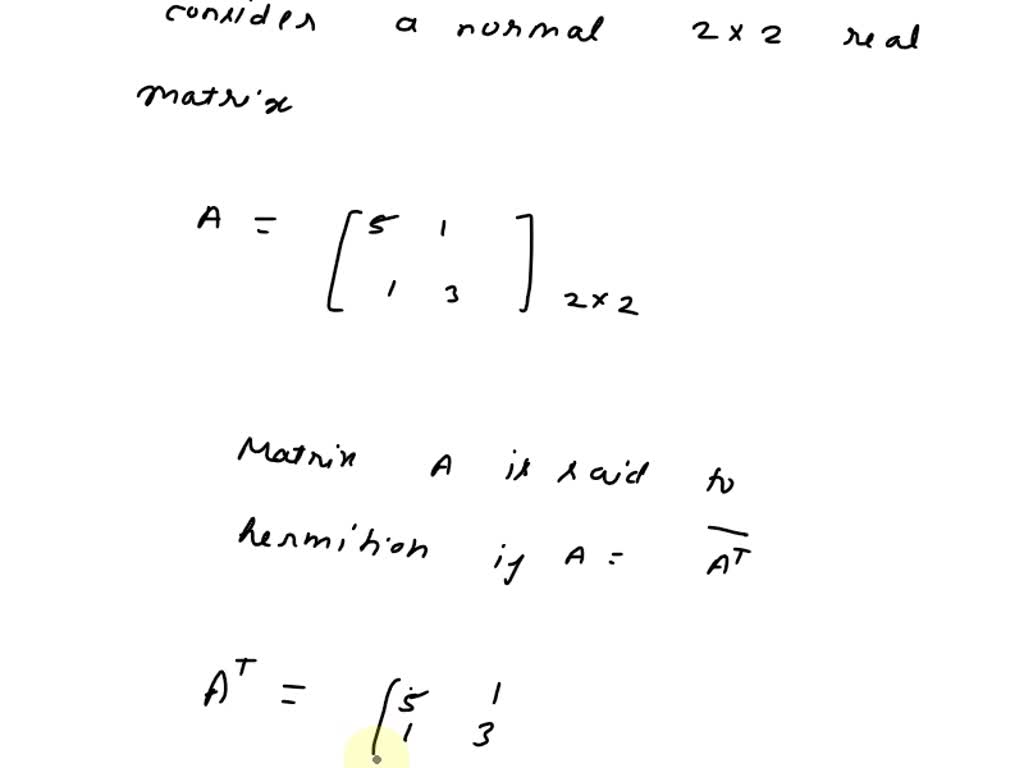 consider a normal 2 × 2 real
matrix
A = [ 5 1
1 3 ] 2 × 2
Matrix A is said to
hermition if A = \overline{A^T}
A^T = [ 5 1
1 3